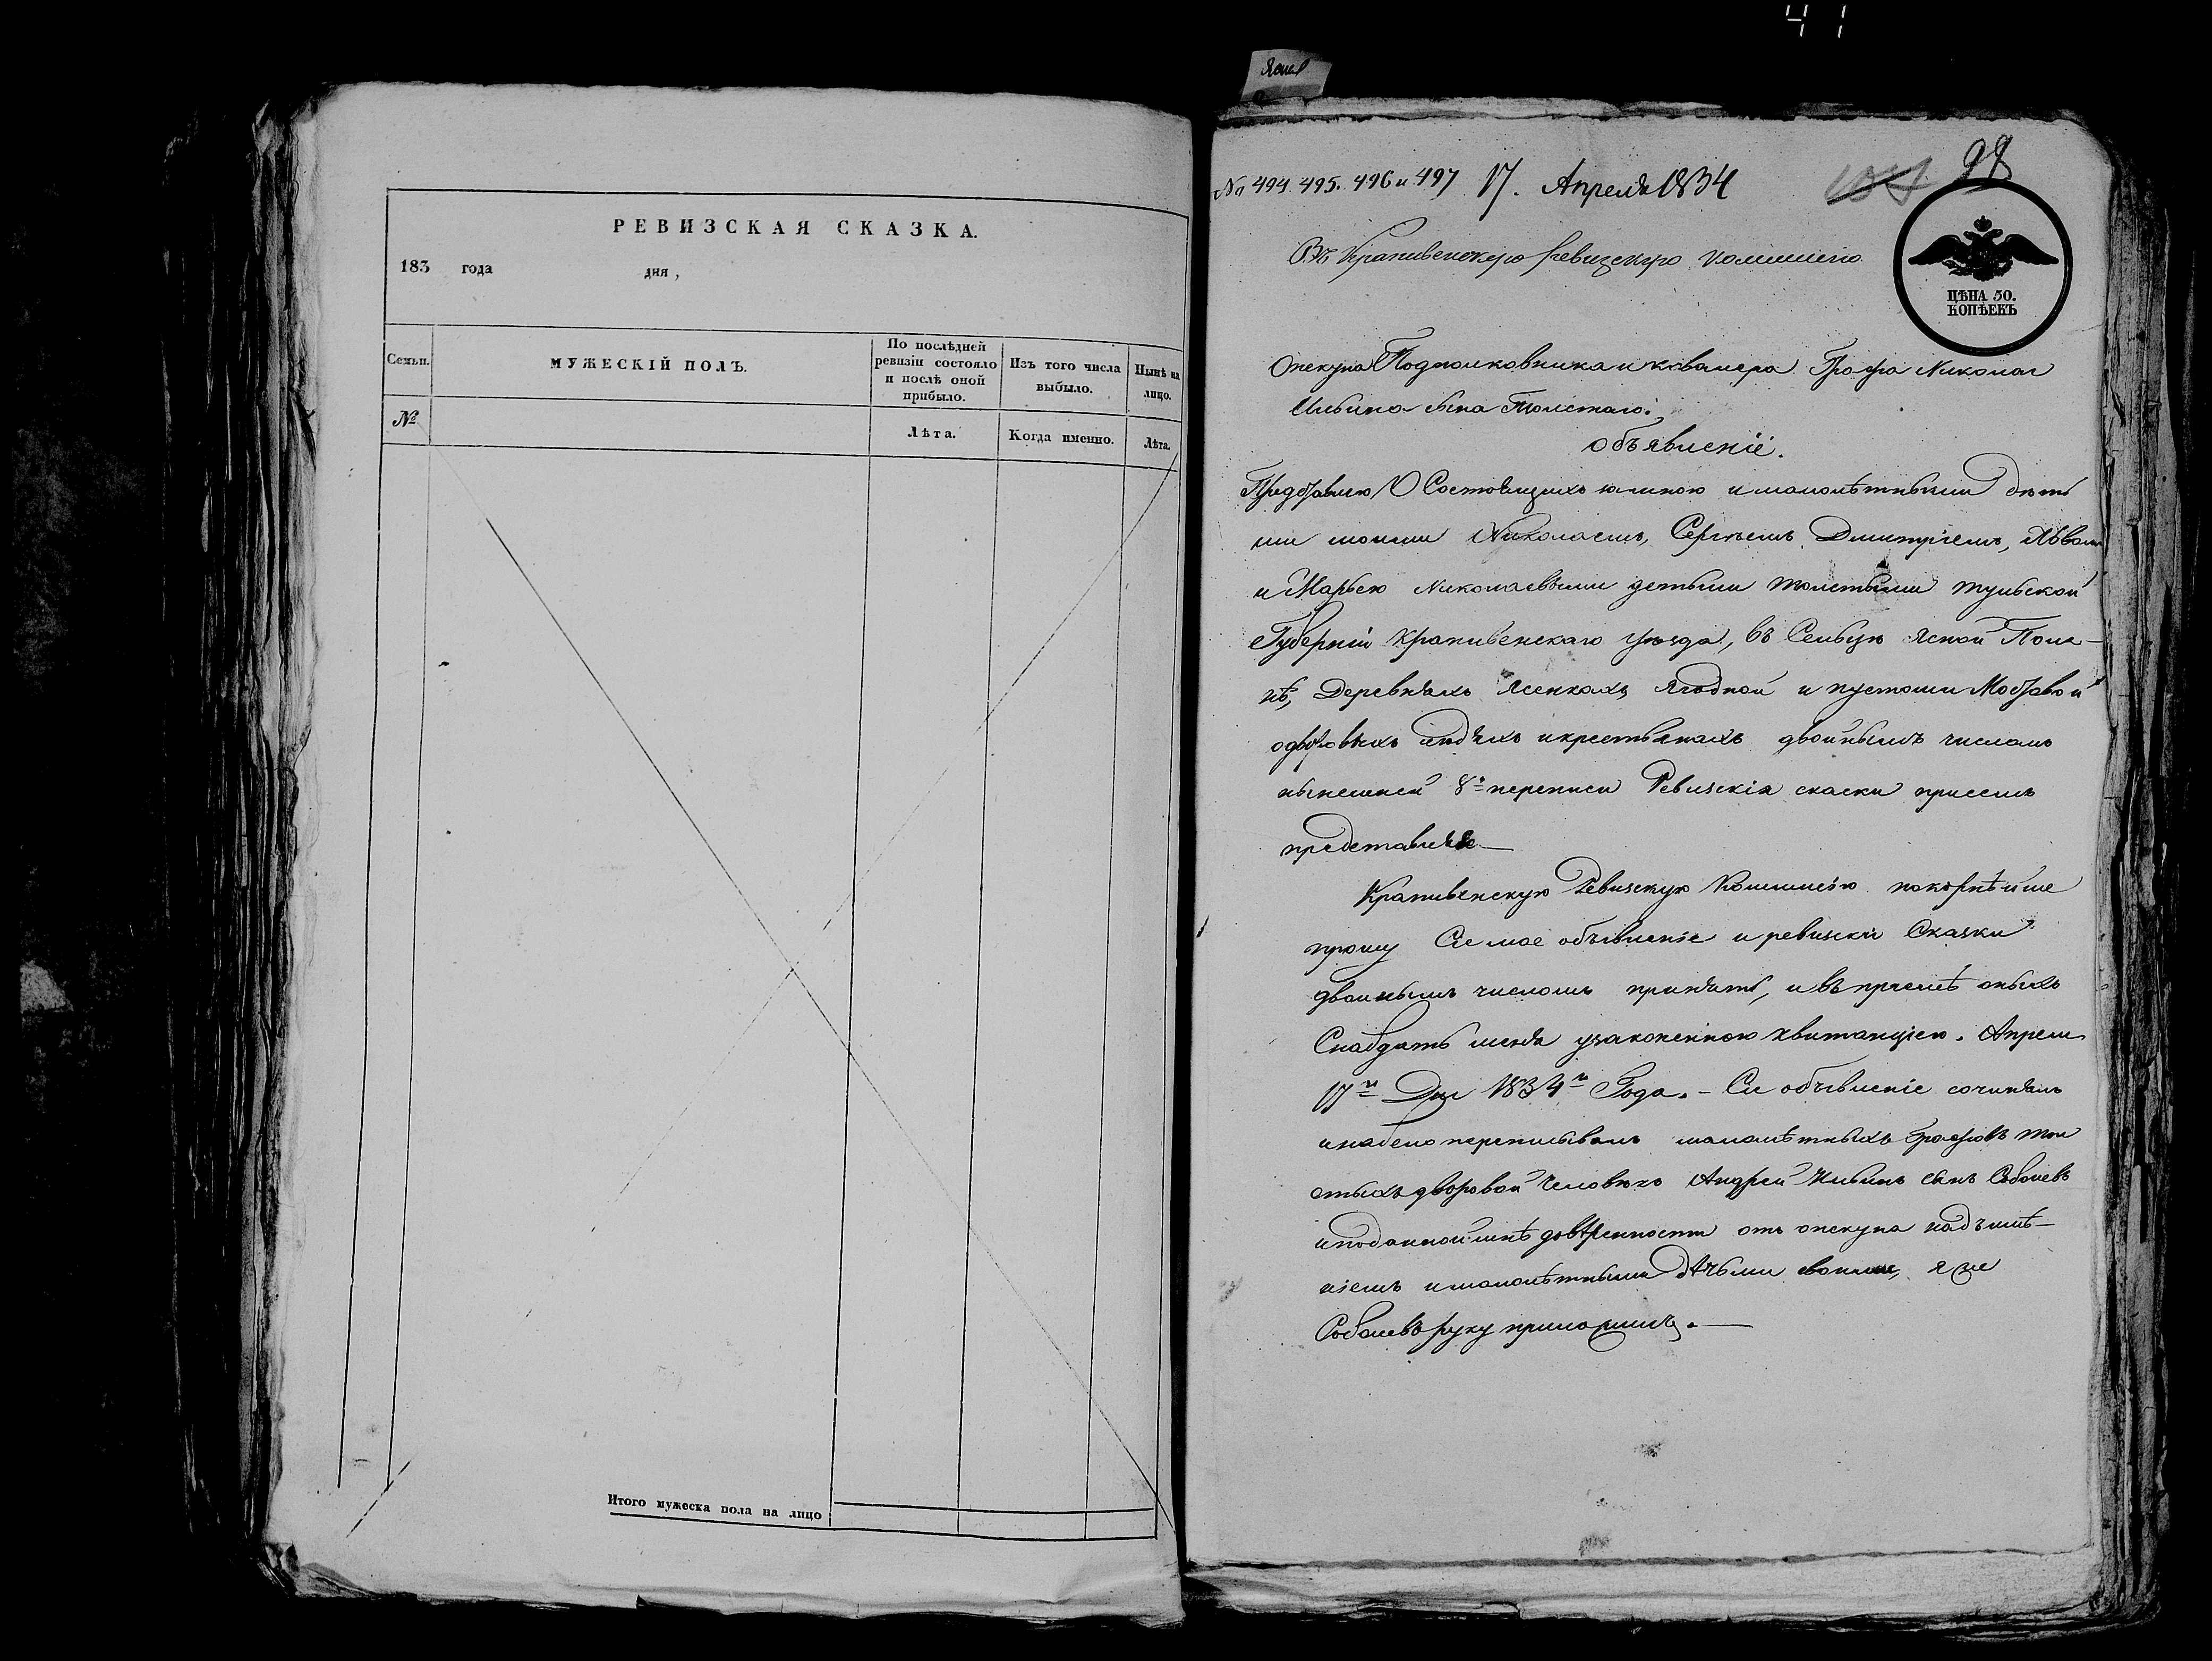 41
РЕВИЗСКАЯ СКАЗКА.
183 года дня,
Семьи.
МУЖЕСКІЙ ПОЛЪ.
По послѣдней
ревизіи состояло
и послѣ оной
прибыло.
Изъ того числа
выбыло.
Нынѣ на
лицо.
№
Лѣта.
Когда именно.
Лѣта.
Итого мужеска пола на лицо
№ 494. 495. 496 и 497 17. Апреля 1834
98
Въ Крапивенскую Ревизскую комиссию
ЦѢНА 50.
КОПѢЕКЪ
Опекуна Подполковника и кавалера Графа Николая
Ильина сына Толстаго.
объявленіе.
О Состоящихъ и малолѣтными дѣть
ми моими Николаемъ, Сергѣемъ Дмитріемъ, Львомъ
и Марьею Николаевыми детьми толстыми тульской
Губерніи Крапивенскаго уѣзда, въ Сельцѣ Ясной Поля-
нѣ, Деревняхъ Ясенкахъ Ягодной и пустоши Мостовой
одворовыхъ людяхъ и крестьянахъ двойнымъ числомъ
нынешней 8й переписи Ревизскія скаски присемъ
представляю
Крапивенскую Ревизскую Коммисію покорнѣйше
прошу Сіе мое объявленіе и ревизскія Сказки
двоинымъ числомъ принять, и въ пріемѣ оныхъ
Снабдать меня узаконенною квитанціею. Апреля
17го Дня 1834го Года. - Сіе объявленіе сочинялъ
и набело переписывалъ малолѣтныхъ графовъ тол
стыхъ дворовой человѣкъ Андрей Ильинъ сынъ Соболевъ
и поданной мнѣ довѣренности отъ опекуна надъимѣ-
ніемъ и малолѣтными дѣтьми своими, я же
Соболевъ руку приложилъ.